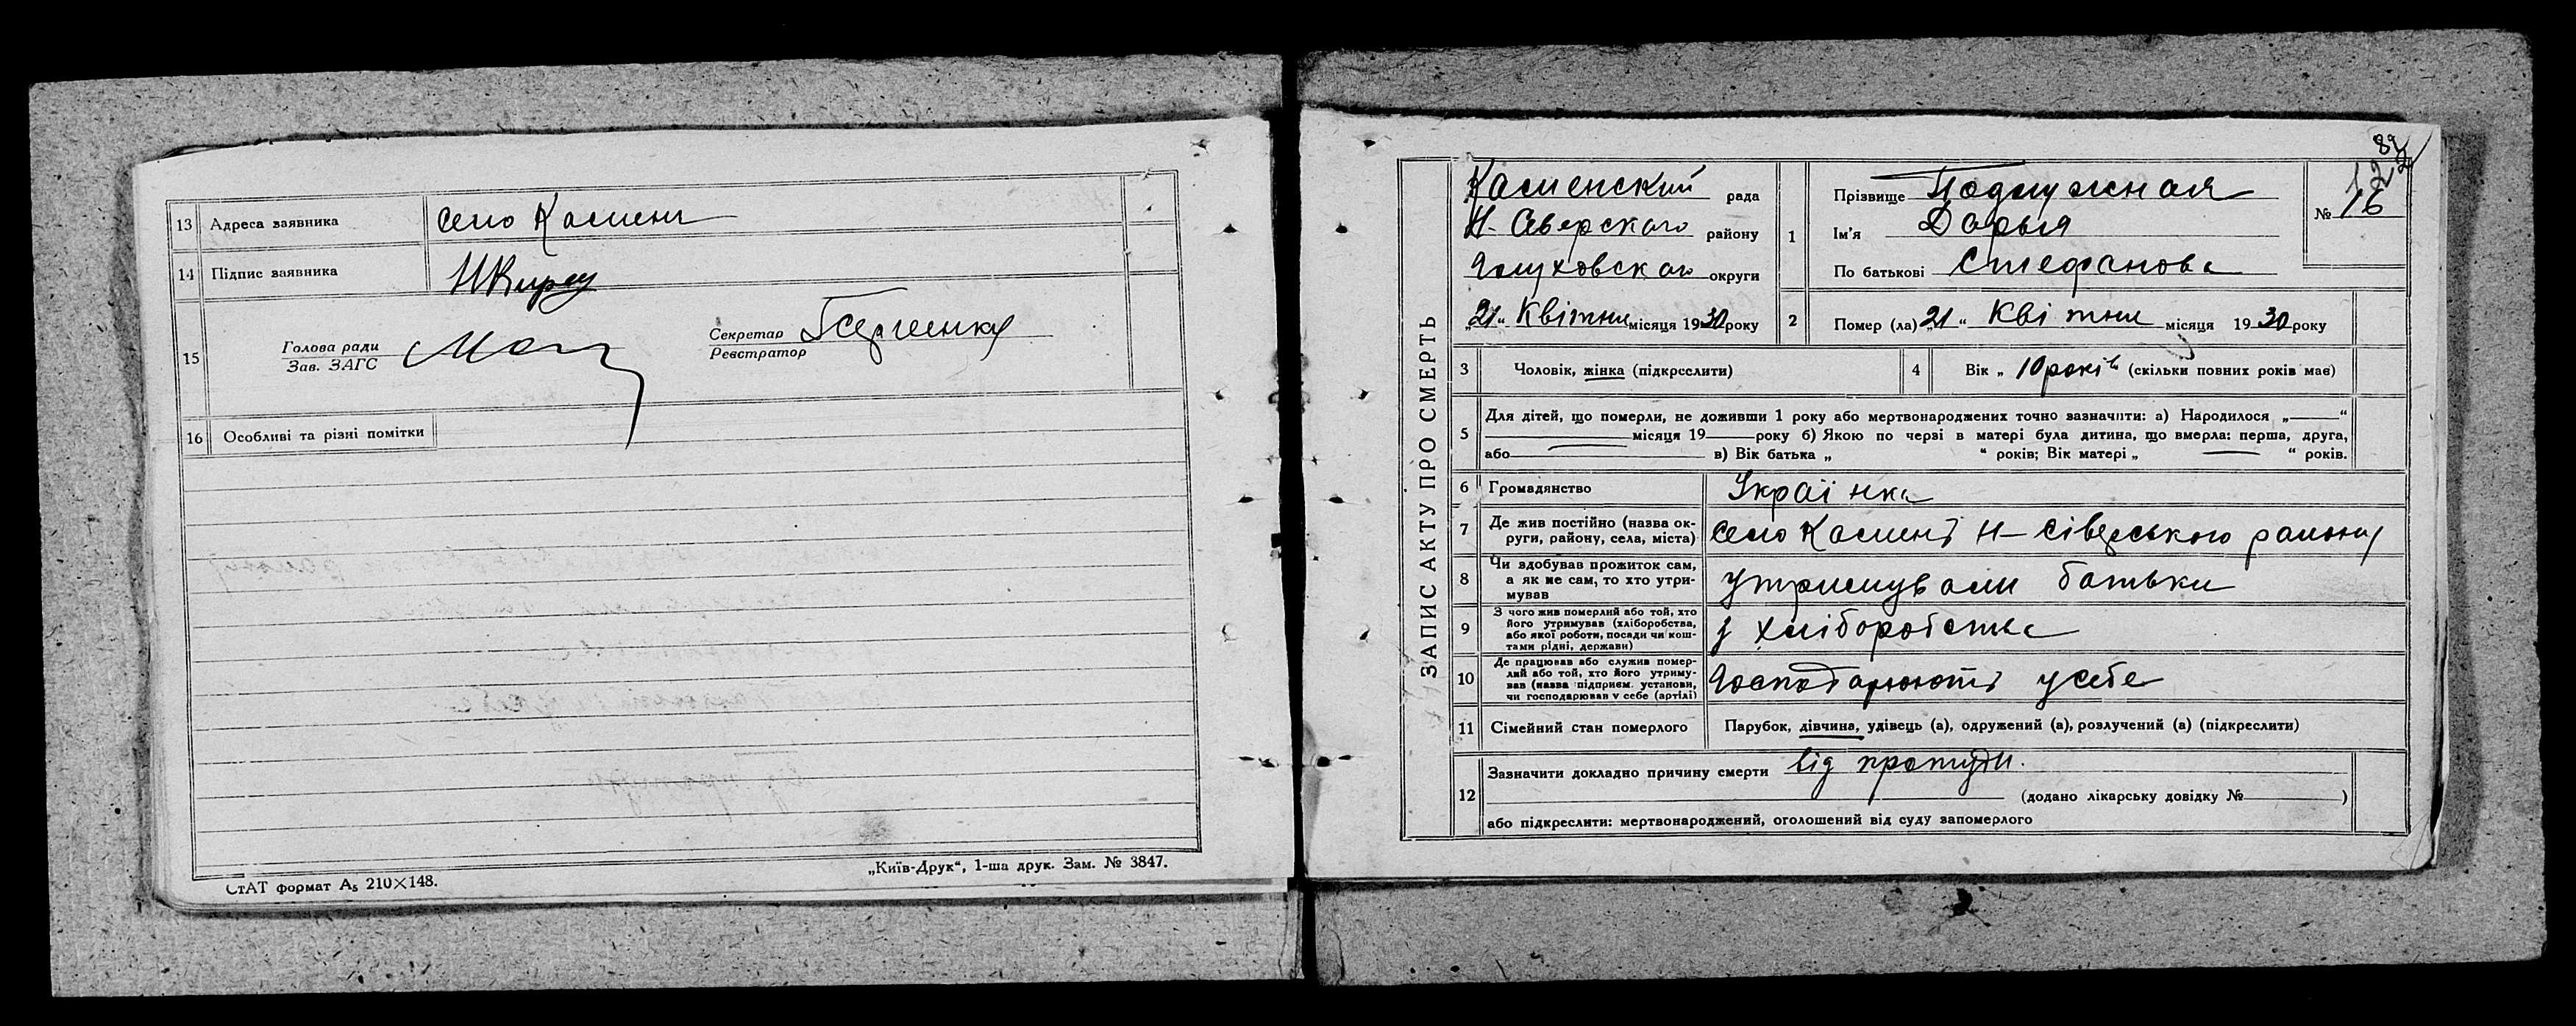 13 Адреса заявника село Камень
14 Підпис заявника
15 Голова ради
Зав. ЗАГС
Секретар
Реєстратор
16 Особливі та різні помітки
СтАТ формат А5 210×148.
„Київ-Друк“, 1-ша друк. Зам. № 3847.
ЗАПИС АКТУ ПРО СМЕРТЬ
Каменский рада
Н-Сверского району
Глуховского округи
„21“ Квітня місяця 1930 року
1 Прізвище Подлужная
Ім'я Дарья
По батькові Стефанова
№ 16
122
2 Помер (ла) „21“ Квітня місяця 1930 року
3 Чоловік, жінка (підкреслити)
4 Вік „ 10 років (скільки повних років має)
5 Для дітей, що померли, не доживши 1 року або мертвонароджених точно зазначити: а) Народилося „ “
місяця 19 року б) Якою по черзі в матері була дитина, що вмерла: перша, друга,
або в) Вік батька „ “ років; Вік матері „ “ років.
6 Громадянство Українка
7 Де жив постійно (назва ок-
руги, району, села, міста) село Камень Н-Сіверського району
8 Чи здобував прожиток сам,
а як не сам, то хто утри-
мував утримували батьки
9 З чого жив померлий або той, хто
його утримував (хліборобства,
або якої роботи, посади чи кош-
тами рідні, держави) з хліборобства
10 Де працював або служив помер-
лий або той, хто його утриму-
вав (назва підприєм. установи,
чи господарював у себе (артілі) господарюють у себе
11 Сімейний стан померлого Парубок, дівчина, удівець (а), одружений (а), розлучений (а) (підкреслити)
12 Зазначити докладно причину смерти від простуди.
(додано лікарську довідку № )
або підкреслити: мертвонароджений, оголошений від суду запомерлого